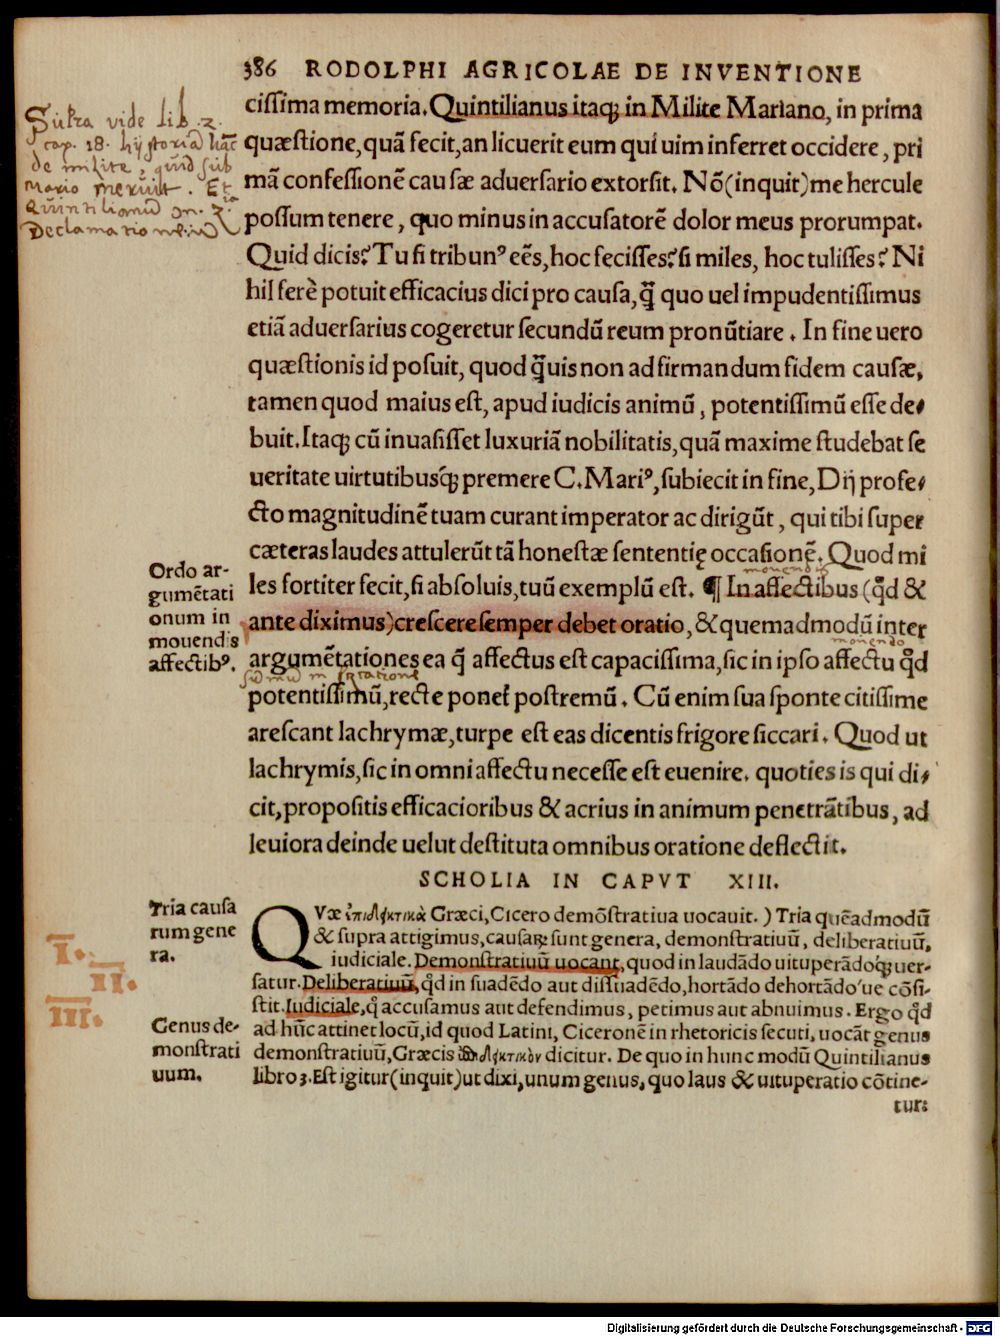 386 RODOLPHI AGRICOLAE DE INVENTIONE
cissima memoria. Quintilianus itaqꝫ in Milite Mariano, in prima
quæstione, quã fecit, an licuerit eum qui uim inferret occidere, pri
mã confessionẽ causæ aduersario extorsit. Nõ (inquit) me hercule
possum tenere, quo minus in accusatorẽ dolor meus prorumpat.
Quid dicis? Tu si tribunꝰ eẽs, hoc fecisses? si miles, hoc tulisses? Ni
hil ferè potuit efficacius dici pro causa, q̃ꝫ quo uel impudentissimus
etiã aduersarius cogeretur secundũ reum pronũtiare. In fine uero
quæstionis id posuit, quod q̃uis non ad firmandum fidem causæ,
tamen quod maius est, apud iudicis animũ, potentissimũ esse de-
buit. Itaqꝫ cũ inuasisset luxuriã nobilitatis, quã maxime studebat se
ueritate uirtutibusqꝫ premere C. Mariꝰ, subiecit in fine, Dij profe-
cto magnitudinẽ tuam curant imperator ac dirigũt, qui tibi super
cæteras laudes attulerũt tã honestæ sententię occasionẽ. Quod mi
les fortiter fecit, si absoluis, tuũ exemplũ est. ¶ In affectibus (qđ &
ante diximus) crescere semper debet oratio, & quemadmodũ inter
argumẽtationes ea q̃ affectus est capacissima, sic in ipso affectu qđ
potentissimũ, recte ponet̃ postremũ. Cũ enim sua sponte citissime
arescant lachrymæ, turpe est eas dicentis frigore siccari. Quod ut
lachrymis, sic in omni affectu necesse est euenire. quoties is qui di-
cit, propositis efficacioribus & acrius in animum penetrãtibus, ad
leuiora deinde uelut destituta omnibus oratione deflectit.
Supra vide lib. 2.
cap. 18. hystoriã hãc
de milite, quid sub
Mario meruit. Et
Quintilianũ in 3.ia
Declamatione
Ordo ar-
gumẽtati
onum in
mouendis
affectibꝰ.
mouendis
mouendo
SCHOLIA IN CAPVT XIII.
QVæ ἐπιδεικτικὰ Græci, Cicero demõstratiua uocauit.) Tria quẽadmodũ
& supra attigimus, causaꝝ sunt genera, demonstratiuũ, deliberatiuũ,
iudiciale. Demonstratiuũ uocant, quod in laudãdo uituperãdoqꝫ uer-
satur. Deliberatiuũ, qđ in suadẽdo aut dissuadẽdo, hortãdo dehortãdo'ue cõsi-
stit. Iudiciale, q̃ accusamus aut defendimus, petimus aut abnuimus. Ergo qđ
ad hũc attinet locũ, id quod Latini, Ciceronẽ in rhetoricis secuti, uocãt genus
demonstratiuũ, Græcis ἐπιδεικτικὸν dicitur. De quo in hunc modũ Quintilianus
libro 3. Est igitur (inquit) ut dixi, unum genus, quo laus & uituperatio cõtine-
tur:
Tria causa
rum gene
ra.
I.
II.
III.
Genus de-
monstrati
uum.
Digitalisierung gefördert durch die Deutsche Forschungsgemeinschaft - DFG